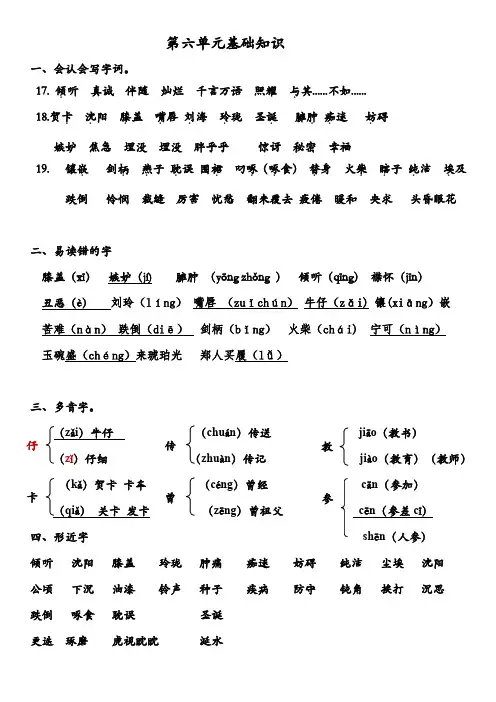 第六单元基础知识
一、会认会写字词。
17. 倾听 真诚 伴随 灿烂 千言万语 照耀 与其……不如……
18.贺卡 沈阳 膝盖 嘴唇 刘海 玲珑 圣诞 臃肿 痴迷 妨碍
嫉妒 焦急 埋没 埋没 胖乎乎 惊讶 秘密 幸福
19. 镶嵌 剑柄 燕子 耽误 围裙 叼啄（啄食） 替身 火柴 瞎子 纯洁 埃及
跌倒 怜悯 裁缝 厉害 忧愁 翻来覆去 疲倦 暖和 央求 头昏眼花
二、易读错的字
膝盖（xī） 嫉妒（jí） 臃肿 （yōng zhǒng ） 倾听（qīng） 襟怀（jīn）
丑恶（è） 刘玲（líng） 嘴唇 （zuǐchún） 牛仔（zǎi） 镶(xiāng）嵌
苦难（nàn） 跌倒（diē） 剑柄（bǐng） 火柴（chái） 宁可（nìng）
玉碗盛（chéng）来琥珀光 郑人买履（lǚ）
三、多音字。
仔 （zǎi）牛仔 （zǐ）仔细 传 （chuán）传送 （zhuàn）传记 教 jiāo（教书） jiào（教育）（教师）
卡 （kǎ）贺卡 卡车 （qiǎ） 关卡 发卡 曾 （céng）曾经 （zēng）曾祖父 参 cān（参加） cēn（参差cī） shēn（人参）
四、形近字
倾听 沈阳 膝盖 玲珑 肿痛 痴迷 妨碍 纯洁 尘埃 沈阳
公顷 下沉 油漆 铃声 种子 疾病 防守 钝角 挨打 沉思
跌倒 啄食 耽误 圣诞
更迭 琢磨 虎视眈眈 涎水